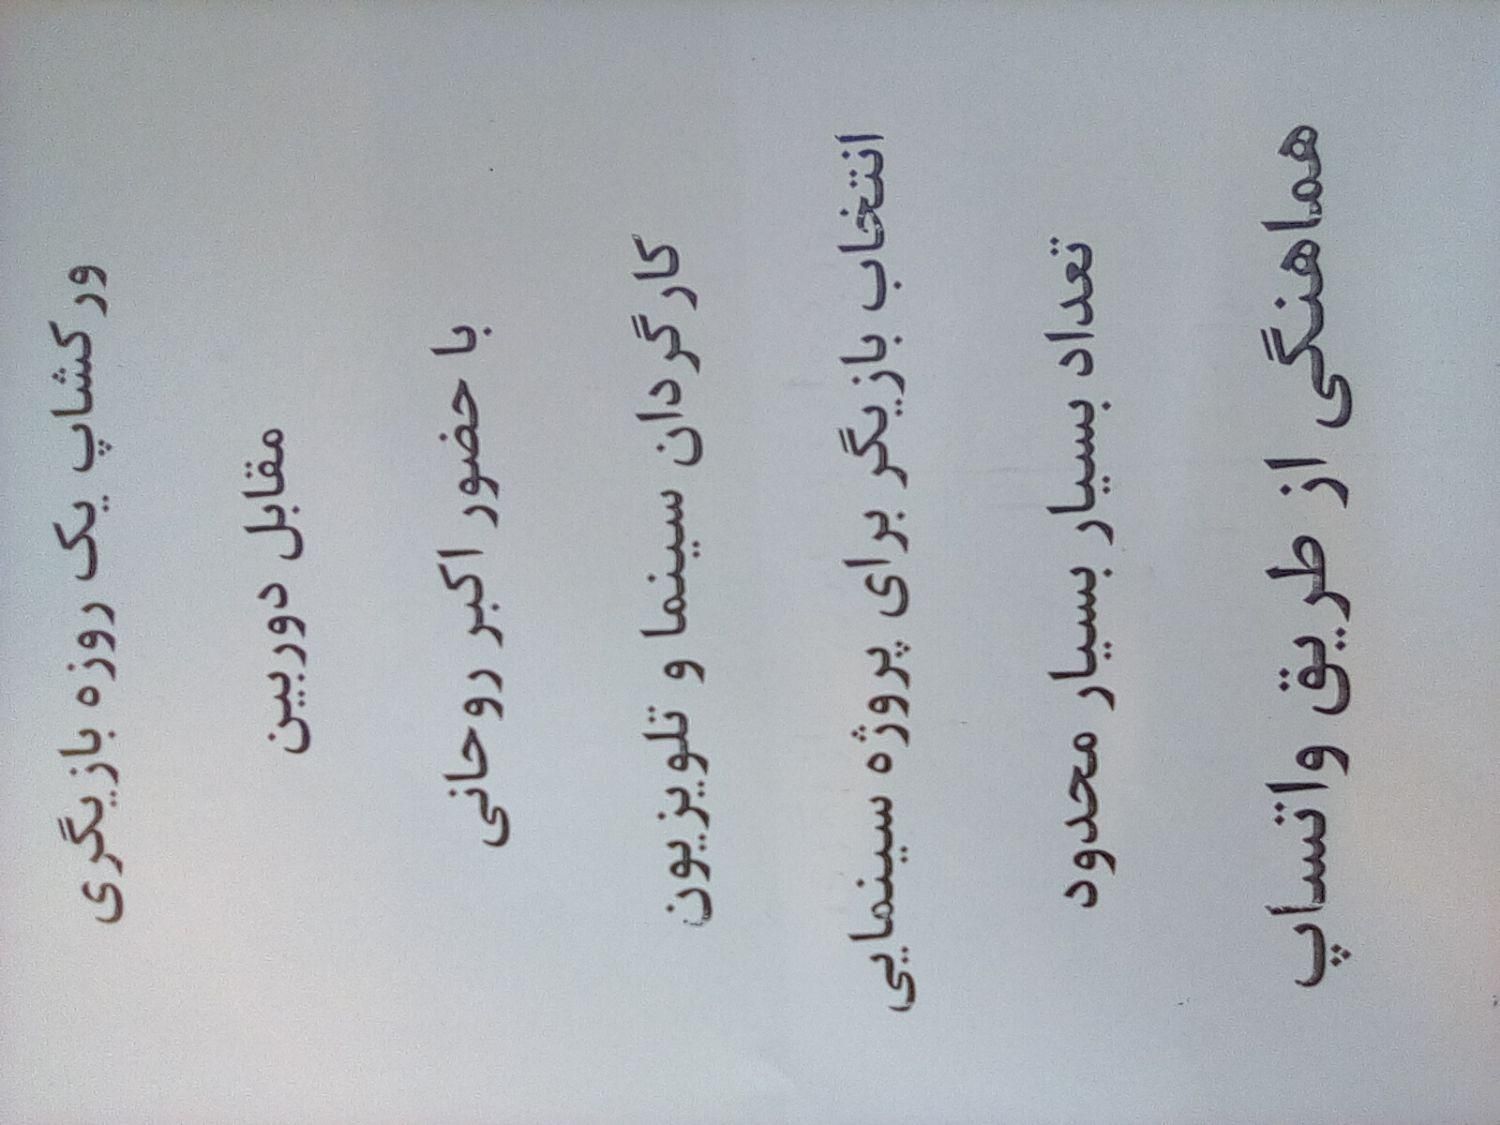 ورکشاپ یک روزه بازیگری
مقابل دوربین
با حضور اکبر روحانی
کارگردان سینما و تلویزیون
انتخاب بازیگر برای پروژه سینمایی
تعداد بسیار بسیار محدود
هماهنگی از طریق واتساپ